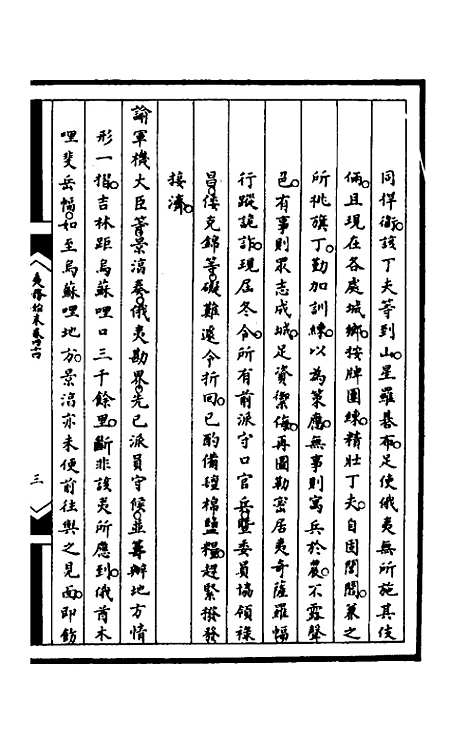 同捍衛。該丁夫等到山。星羅碁布。足使俄夷無所施其伎
倆。且現在各處城鄉。按牌團練。精壯丁夫。自固閭閻。兼之
所挑旗丁。勤加訓練。以為策應。無事則寓兵於農。不露聲
色。有事則眾志成城。足資禦侮。再圖勒密居夷奇薩羅幅
行蹤詭詐。現屆冬令。所有前派守口官兵。暨委員協領祿
昌。倭克錦等。礙難遽令折回。已酌備氊棉鹽糧。趕緊撥發
接濟。
諭軍機大臣等。景淳奏。俄夷勘界。先已派員守候。並籌辦地方情
形一摺。吉林距烏蘇哩口三千餘里。斷非該夷所應到。俄酋木
哩斐岳幅。如至烏蘇哩地方。景淳亦未便前往與之見面。即飭
夷務始末卷四十四
三